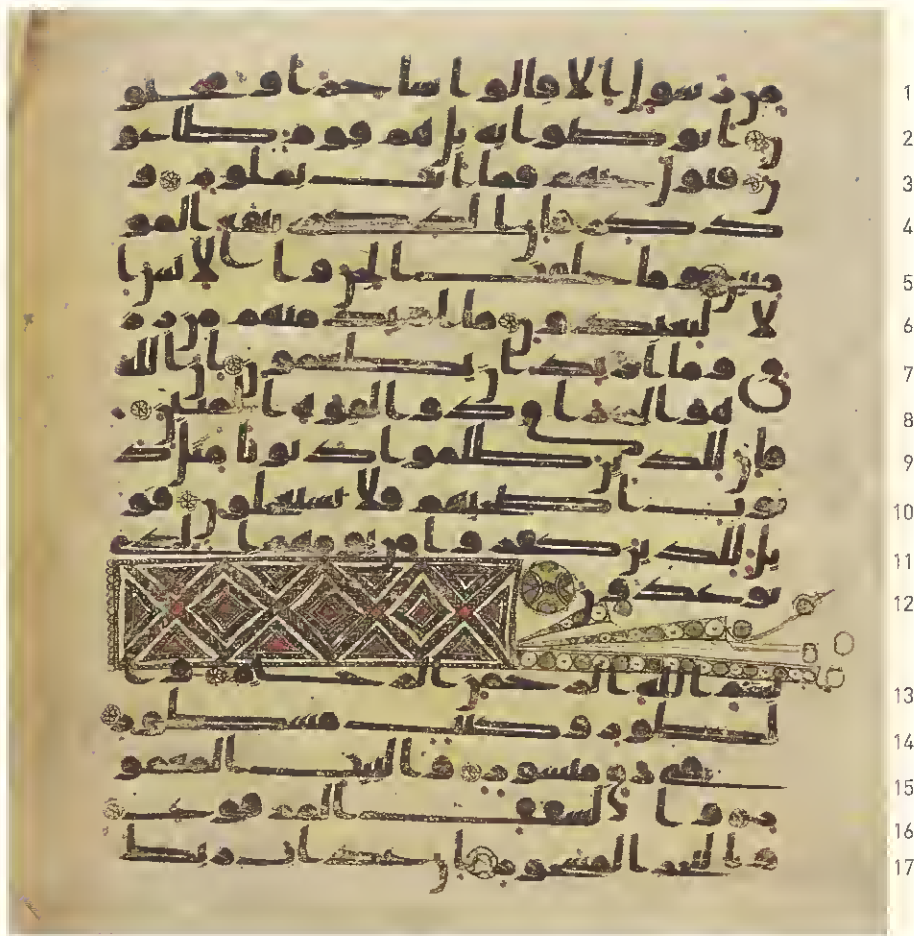 من رسول الا قالوا ساحر او مجنو 1
ن اتواصوا به بل هم قوم طاغو 2
ن فتول عنهم فما انت بملوم و 3
ذكر فان الذكرى تنفع المو 4
منين وما خلقت الجن والانس ا 5
لا ليعبدون ما اريد منهم من رز 6
ق وما اريد ان يطعمون ان الله 7
هو الرزاق ذو القوة المتين 8
فان للذين ظلموا ذنوبا مثل ذ 9
نوب اصحبهم فلا يستعجلون فو 10
يل للذين كفروا من يومهم الذي 11
يوعدون 12
بسم الله الرحمن الرحيم وا 13
لطور وكتب مسطور 14
في رق منشور والبيت المعمو 15
ر والسقف المرفوع 16
والبحر المسجور ان عذاب ربك 17